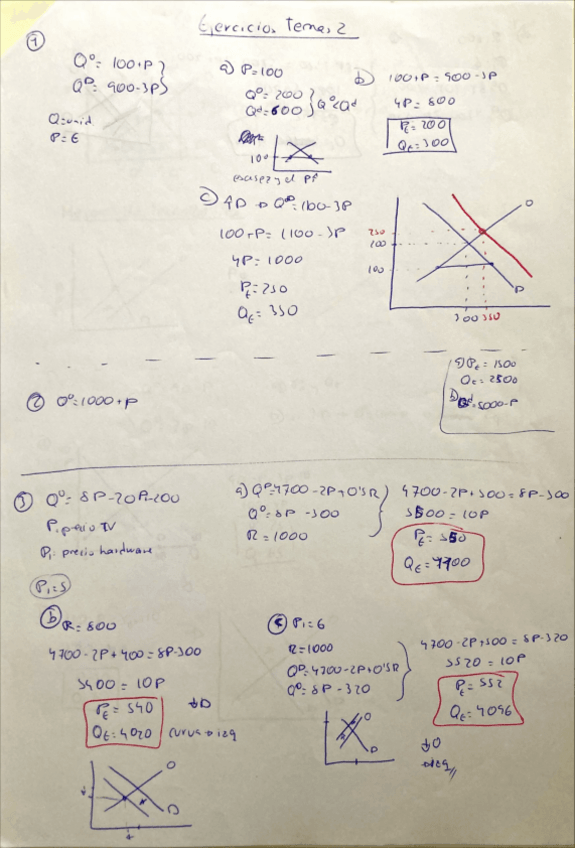 Ejercicios Temas 2
①
Qº = 100+P
Qᴰ = 900-3P
Q=unid
P=€
a) P=100
Qº = 200
Qd = 600
Qº<Qd
100
escasez y el
b) 100+P = 900-3P
4P = 800
PE = 200
QE = 300
c)
100+P = 1100-3P
4P = 1000
PE = 250
QE = 350
O
250
200
100
D
300 350
② Oº = 1000+P
a) PE = 1500
QE = 2500
b) Qd = 5000-P
③ Qº = 8P-20Pi-200
P: precio TV
Pi: precio hardware
Pi=5
a) Qᴰ = 4700-2P+0'5R
Qº = 8P-300
R = 1000
4700-2P+500 = 8P-300
5500 = 10P
PE = 550
QE =
b) R = 800
4700-2P+400 = 8P-300
5400 = 10P
PE = 540
QE = 4020
↓D
curva → izq
O
D
c) Pi = 6
R = 1000
Qᴰ = 4700-2P+0'5R
Qº = 8P-320
4700-2P+500 = 8P-320
5520 = 10P
PE = 552
QE = 4096
O
D
↓O
→izq